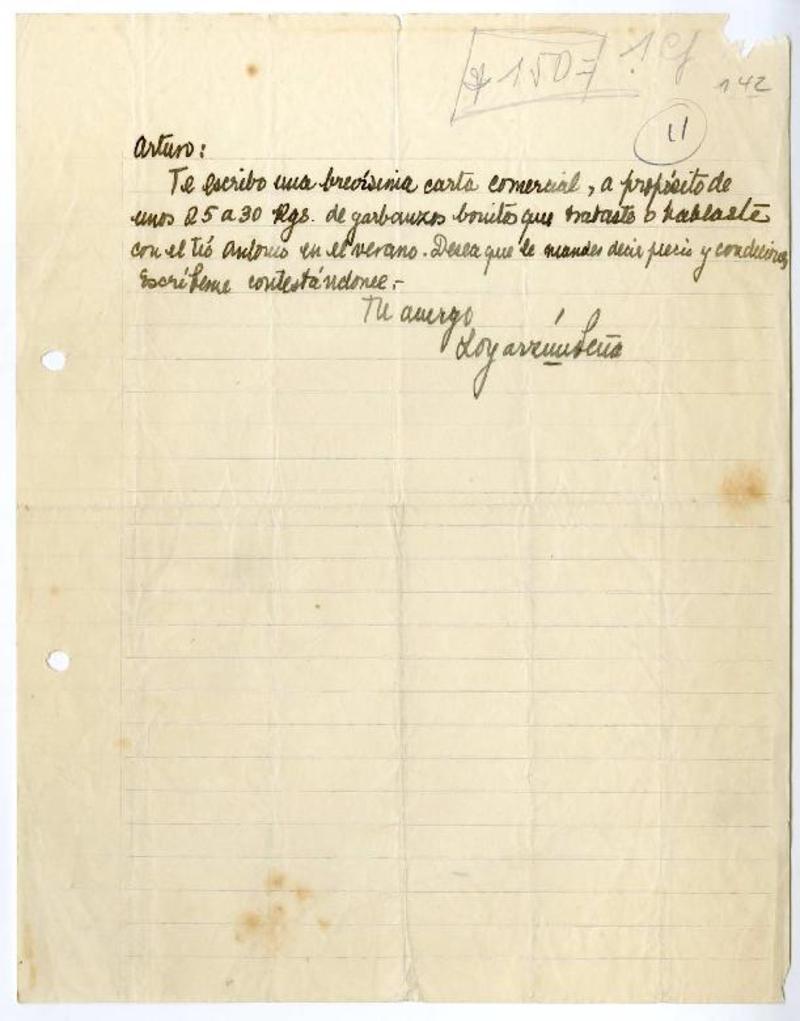 $ 150=
142
11
Arturo:
Te escribo una brevísima carta comercial, a propósito de
unos 25 a 30 Kgs. de garbanzos bonitos que trataste o hablaste
con el tío Antonio en el verano. Desea que le mandes decir precio y condiciones
Escríbeme contestándome.-
Tu amigo
Loyarzún Peña